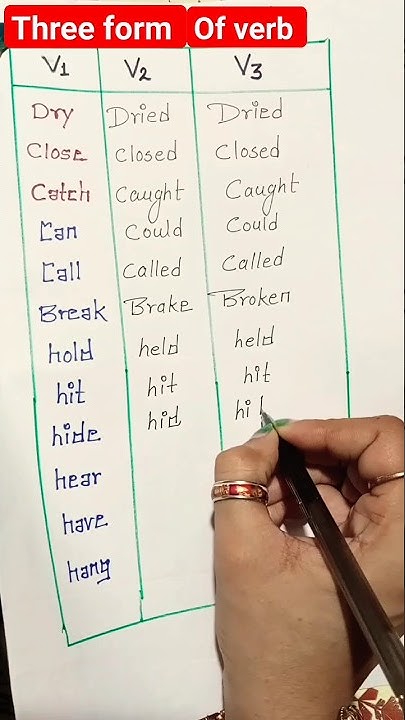 Three form Of verb
V1 V2 V3
Dry Dried Dried
Close Closed Closed
Catch Caught Caught
Can Could Could
Call Called Called
Break Brake Broken
hold held held
hit hit hit
hide hid hi
hear
have
hang